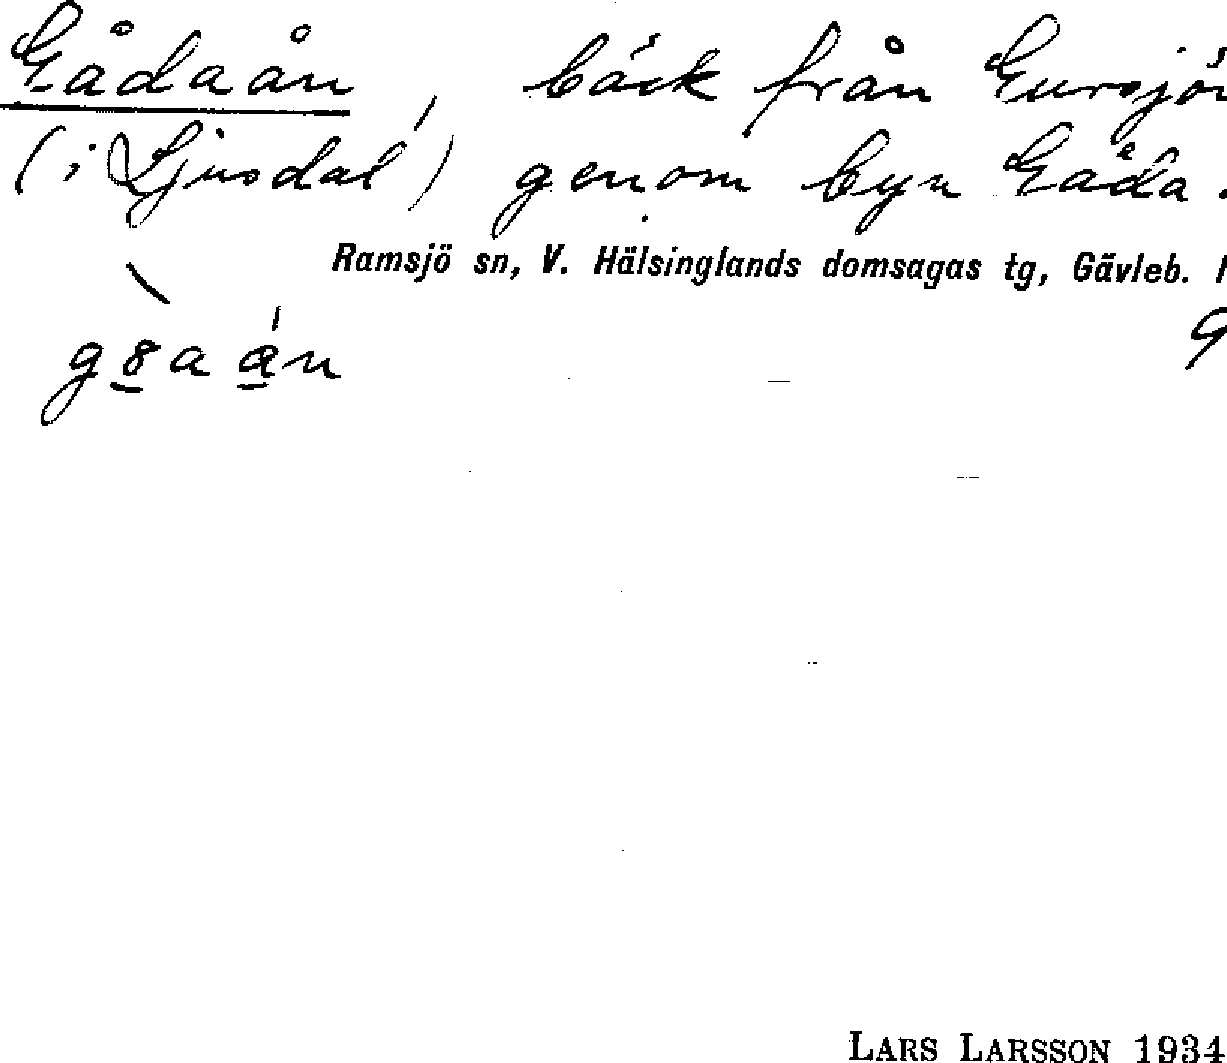 Gådaån, bäck från Gursjön
(i Ljusdal) genom byn Gåda.
Ramsjö sn, V. Hälsinglands domsagas tg, Gävleb. l
9
LARS LARSSON 1934